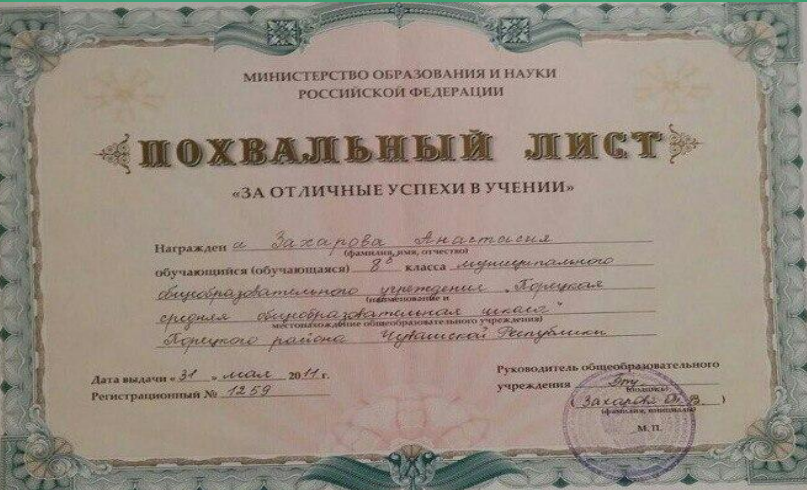 МИНИСТЕРСТВО ОБРАЗОВАНИЯ И НАУКИ
РОССИЙСКОЙ ФЕДЕРАЦИИ
ПОХВАЛЬНЫЙ ЛИСТ
«ЗА ОТЛИЧНЫЕ УСПЕХИ В УЧЕНИИ»
Награжден а Захарова Анастасия
(фамилия, имя, отчество)
обучающийся (обучающаяся) 8 класса муниципального
общеобразовательного учреждения „Порецкая
(наименование и
средняя общеобразовательная школа"
местонахождение общеобразовательного учреждения)
Порецкого района Чувашской Республики
Дата выдачи « 31 » мая 2011 г.
Регистрационный № 1259
Руководитель общеобразовательного
учреждения
(подпись)
( Захаров )
(фамилия, инициалы)
М.П.